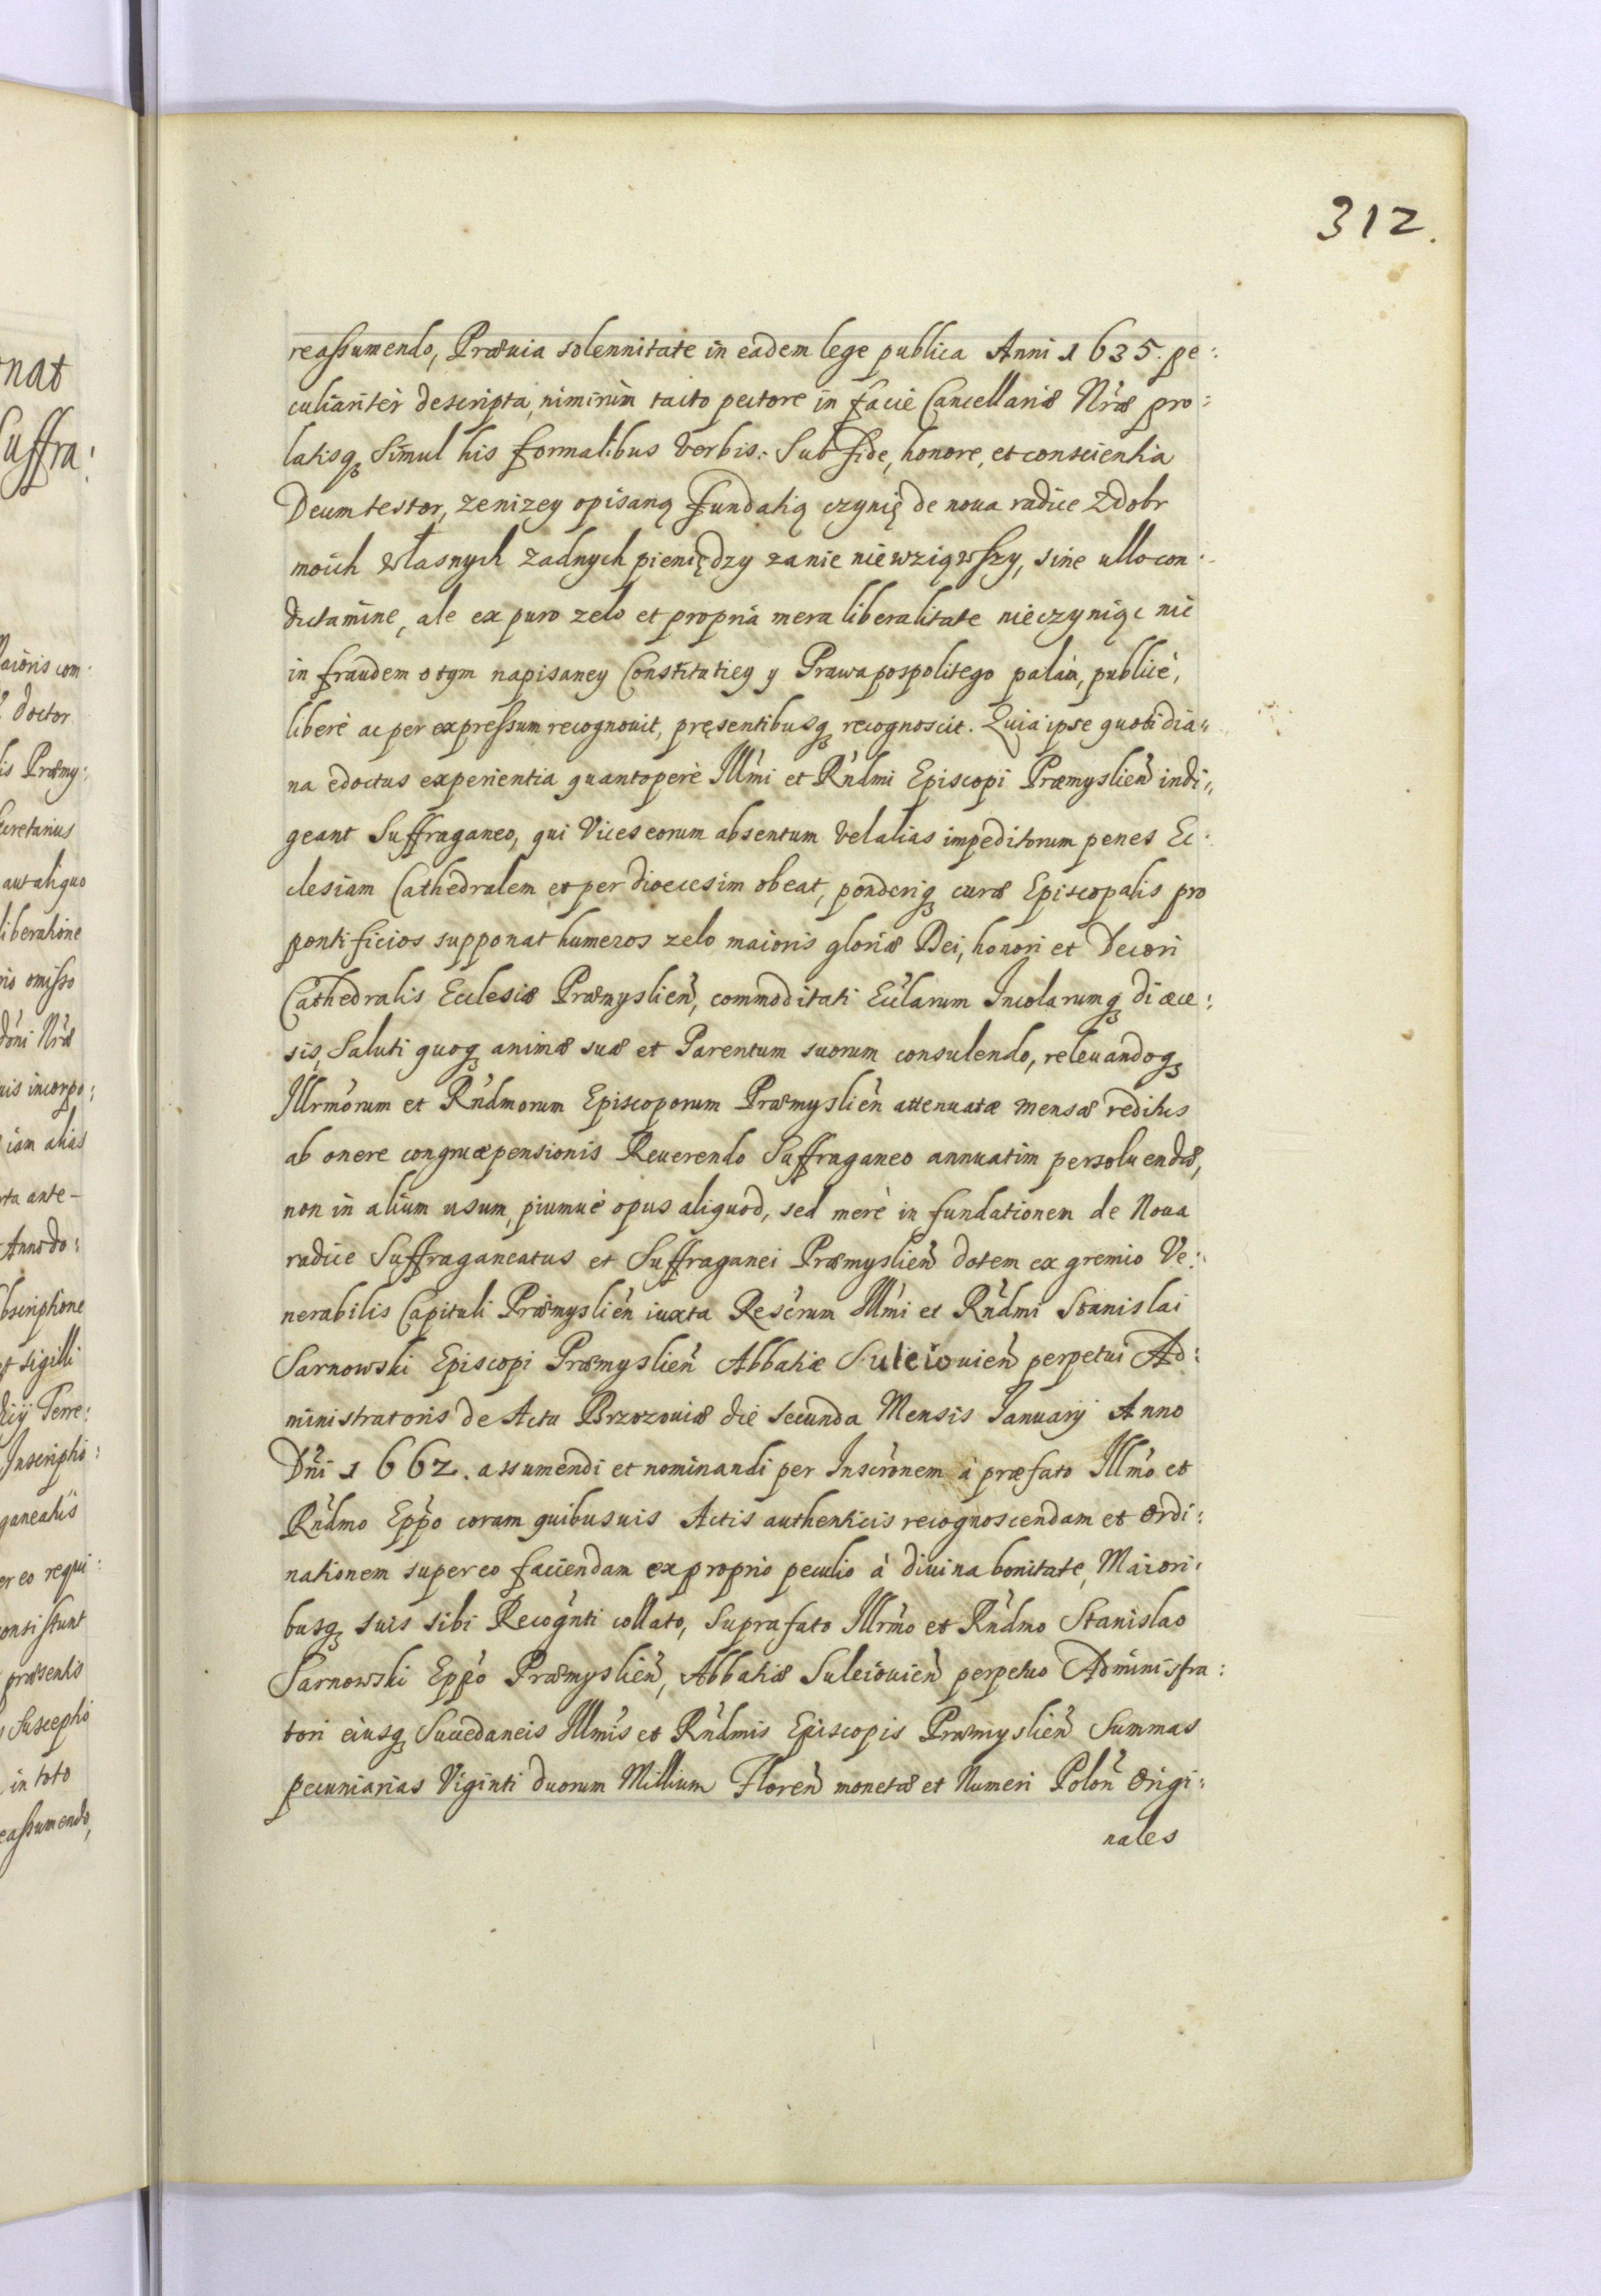 312.
reassumendo, Præuia solennitate in eadem lege publica Anni 1635. pe:
culiaritèr descripta, nimirùm tacto pectore in facie Cancellariæ Nr̃æ pro:
latisq₃ Simul his formalibus Verbis: Sub fide, honore, et conscientia
Deum testor, ze nizey opisaną Fundatią czynię de noua radice Zdobr
moich własnych zadnych pieniędzy za nie niewziąwszy, sine ullo con:
dictamine, ale ex puro zelo et propria mera liberalitate nieczyniąc nic
in fraudem o tym napisaney Constitutiey y Prawa pospolitego palàm, publicè,
liberè ac per expressum recognouit, pręsentibusq₃ recognoscit. Quia ipse quotidia:
na edoctus experientia quantoperè Illm̃i et Rñdmi Episcopi Præmyslieñ indi:
geant Suffraganeo, qui Vices eorum absentum Vel alias impeditorum penes Ec:
clesiam Cathedralem et per dioecesim obeat, ponderiq₃ curæ Episcopalis pro
pontificios supponat humeros zelo maioris gloriæ Dei, honori et Decori
Cathedralis Ecclesiæ Præmyslieñ, commoditati Ecl̃arum Incolarumq₃ diæce:
sis, Saluti quoq₃ animæ suæ et Parentum suorum consulendo, releuandoq₃
Illrm̃orum et Rñdmorum Episcoporum Præmyslieñ attenuatæ mensæ reditus
ab onere congruæ pensionis Reuerendo Suffraganeo annuatim persoluendæ,
non in alium usum, piumuè opus aliquod, sed merè in fundationem de Noua
radice Suffraganeatus et Suffraganei Præmyslieñ dotem ex gremio Ve:
nerabilis Capituli Præmyslieñ iuxta Rescr̃um Illm̃i et Rñdmi Stanislai
Sarnowski Episcopi Præmyslieñ Abbatiæ Suleiouieñ perpetui Ad:
ministratoris de Actu Brzozouiæ die secunda Mensis Ianuarij Anno
Dñi 1662. assumendi et nominandi per Inscr̃onem à præfato Illm̃o et
Rñdmo Epp̃o coram quibusuis Actis authenticis recognoscendam et Ordi:
nationem super eo faciendam ex proprio peculio à diuina bonitate, Maiori:
busq₃ suis sibi Recogñti collato, Suprafato Illrm̃o et Rñdmo Stanislao
Sarnowski Epp̃o Præmyslieñ, Abbatiæ Suleiouieñ perpetuo Administra:
tori eiusq₃ Succedaneis Illm̃is et Rñdmis Episcopis Præmyslieñ Summas
pecuniarias Viginti duorum Millium Floreñ monetæ et Numeri Poloñ Origi:
nales